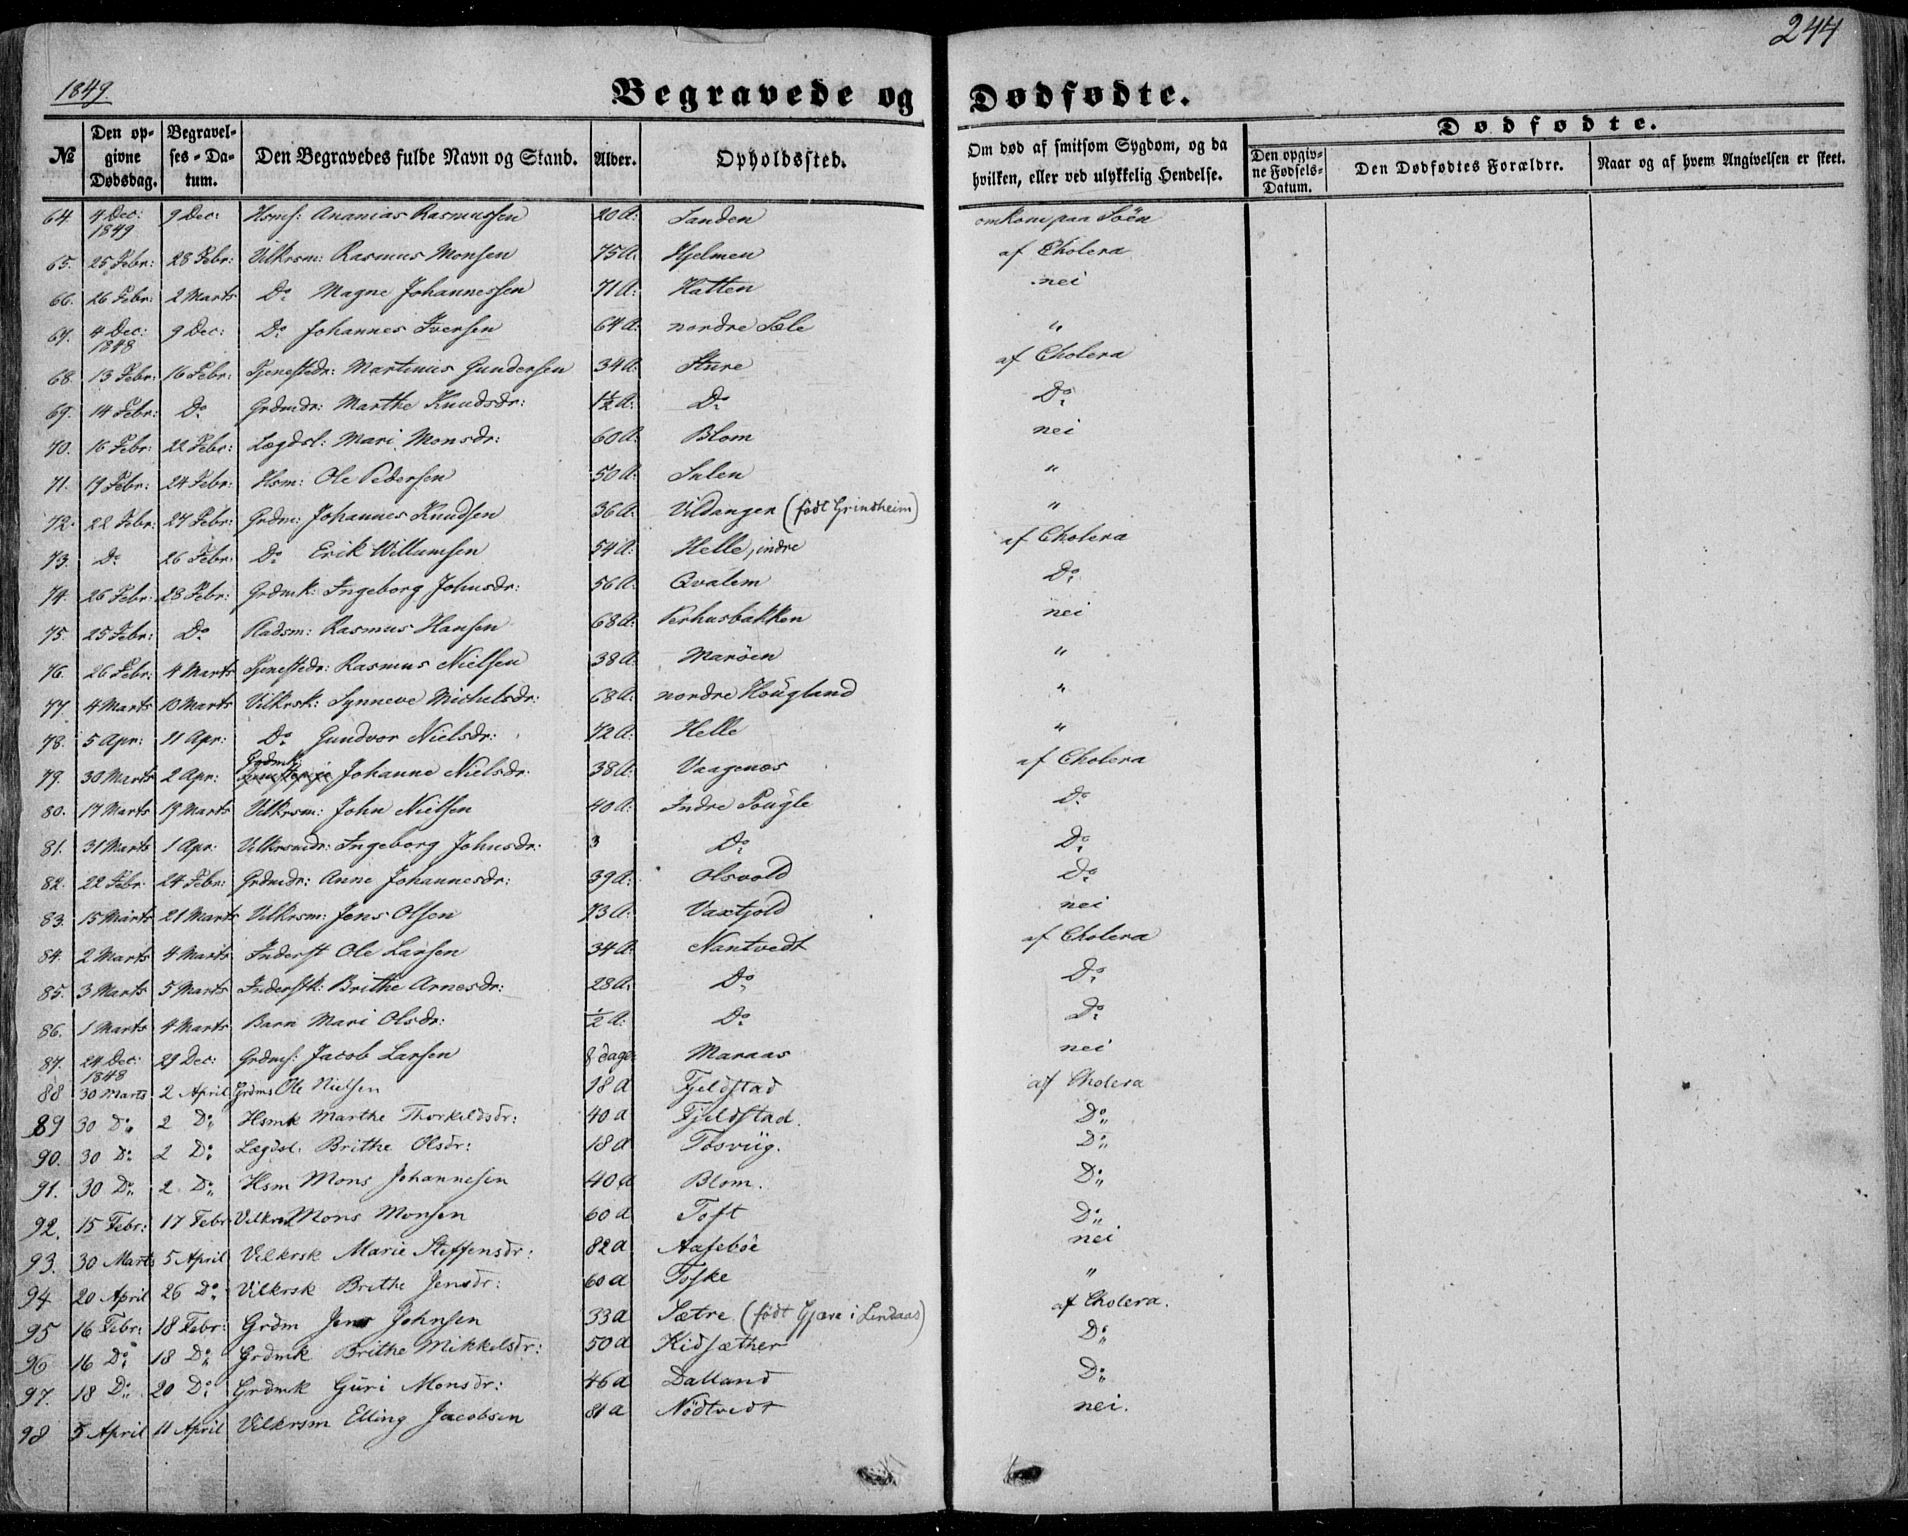 244
1849
Begravede og Dødfødte.
№ | Den opgivne Dødsdag. | Begravelses-Datum. | Den Begravedes fulde Navn og Stand. | Alder. | Opholdssted. | Om død af smitsom Sygdom, og da hvilken, eller ved ulykkelig Hendelse. | Dødfødte. | Den opgivne Fødsels-Datum. | Den Dødfødtes Forældre. | Naar og af hvem Angivelsen er skeet.
64 | 4 Dec: 1849 | 9 Dec: | Hsmf: Ananias Rasmussen | 20 A: | Sanden | omkom paa Söen
65. | 25 Febr: | 28 Febr: | Vilkrsm: Rasmus Monsen | 75 A: | Hjelmen | af Cholera
66. | 26 Febr: | 2 Marts | Do Magne Johannessen | 71 A: | Hatten | nei
67. | 4 Dec: 1848 | 9 Dec: | Do Johannes Iversen | 64 A: | nordre Sæle | "
68. | 13 Febr: | 16 Febr: | Tjenestedr: Martinus Gundersen | 34 A: | Sture | af Cholera
69. | 14 Febr: | Do | Grdmdr: Marthe Knudsdr: | 1½ A: | Do | Do
70. | 16 Febr: | 22 Febr: | Lægdsl: Mari Monsdr: | 60 A: | Blom | nei
71. | 19 Febr: | 24 Febr: | Hsm: Ole Pedersen | 50 A: | Sulen | "
72. | 22 Febr: | 27 Febr: | Grdm: Johannes Knudsen | 36 A: | Vildangen (født Grindheim) | "
73. | Do | 26 Febr: | Do Erik Willumsen | 54 A: | Helle, indre | af Cholera
74. | 26 Febr: | 28 Febr: | Grdmk: Ingeborg Johnsdr: | 56 A: | Qvalem | Do
75. | 25 Febr: | Do | Radsm: Rasmus Hansen | 68 A: | Kerhusbakken | nei
76. | 26 Febr: | 4 Marts | Tjenestedr: Rasmus Nielsen | 38 A: | Maröen | "
77. | 4 Marts | 10 Marts | Vilkrsk: Synneve Michelsdr: | 68 A: | nordre Hougland | "
78. | 5 Apr: | 11 Apr: | Do Gundvor Nielsdr: | 72 A: | Helle | "
79. | 30 Marts | 2 Apr: | Grdmk: Johanne Nielsdr: | 38 A: | Vaagenæs | af Cholera
80. | 17 Marts | 19 Marts | Vilkrsm: John Nielsen | 40 A: | Indre Tougle | Do
81. | 31 Marts | 1 Apr: | Vilkrsmdr: Ingeborg Johnsdr: | 3 | Do | Do
82. | 22 Febr. | 24 Febr: | Grdmdr: Anne Johannesdr: | 39 A: | Olsvold | Do
83. | 15 Marts | 21 Marts | Vilkrsm: Jens Olsen | 73 A: | Vaxtjold | nei
84. | 2 Marts | 4 Marts | Inderst Ole Larsen | 34 A: | Nantvedt | af Cholera
85. | 3 Marts | 5 Marts | Inderstk: Brithe Arnesdr: | 28 A: | Do | Do
86. | 1 Marts | 4 Marts | Barn Mari Olsdr: | ½ A: | Do | Do
87. | 24 Dec: 1848 | 29 Dec: | Grdmf: Jacob Larsen | 8 dage | Maraas | nei
88 | 30 Marts | 2 April | Grdms Ole Nielsen | 18 A | Fjeldstad | af Cholera
89 | 30 Do | 2 Do | Hsmk Marthe Thorkildsdr: | 40 a | Fjeldstad. | Do
90. | 30 Do | 2 Do | Lægdsl. Brithe Olsdr: | 18 a | Tosviig. | Do
91. | 30 Do | 2 Do | Hsm Mons Johannesen | 40 a | Blom. | Do
92. | 15 Febr: | 17 Febr | Vilkrsm Mons Monsen | 60 a | Toft | Do
93. | 30 Marts | 5 April | Vilkrsk Marie Steffensdr: | 82 a | Aasebøe | nei
94 | 20 April | 26 Do | Vilkrsk Brithe Jensdr: | 60 a | Toske | "
95 | 16 Febr: | 18 Febr: | Grdm Jens Johnsen | 33 a | Sætre (født Gjære i Lindaas) | af Cholera.
96 | 16 Do | 18 Do | Grdmk Brithe Mikkelsdr: | 50 a | Kidsæther | Do
97. | 18 Do | 20 Do | Grdmk Guri Monsdr: | 46 a | Dalland | Do
98 | 5 April | 11 April | Vilkrsm Elling Jacobsen | 81 a | Nödtvedt | nei.